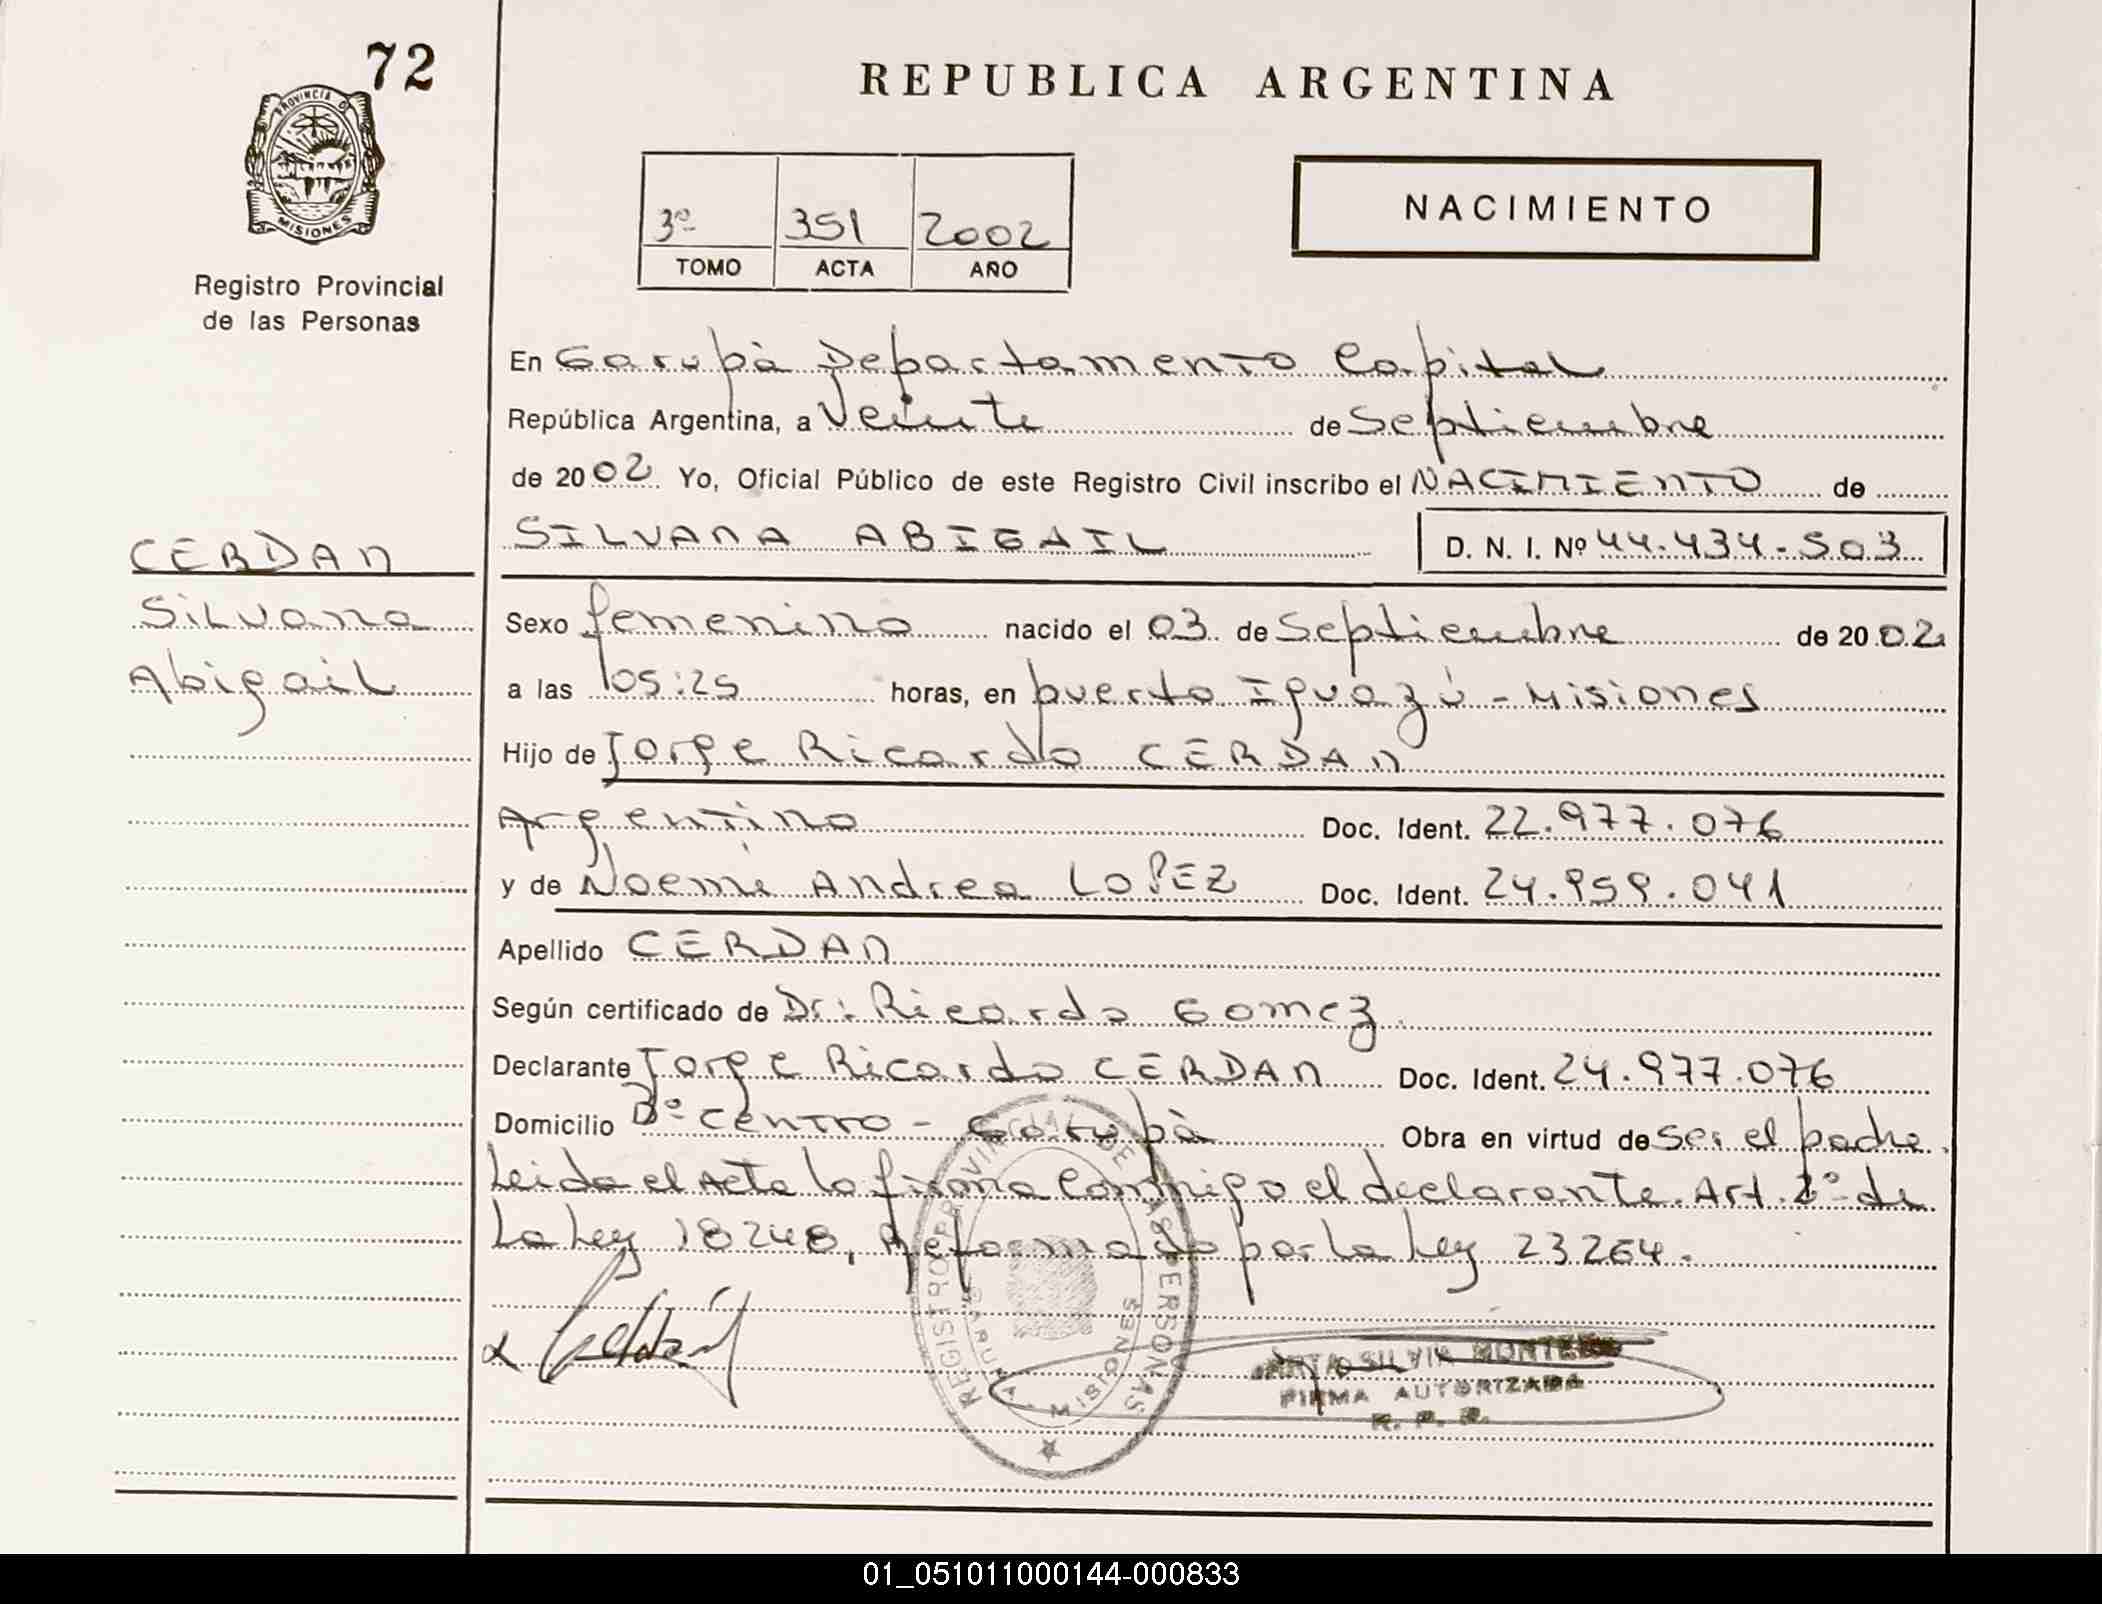 72
PROVINCIA D
MISIONES
Registro Provincial
de las Personas
REPUBLICA ARGENTINA
3º 351 2002
TOMO ACTA AÑO
NACIMIENTO
En Garupà Departamento Capital
República Argentina, a Veinte de Septiembre
de 2002 Yo, Oficial Público de este Registro Civil inscribo el NACIMIENTO de
SILVANA ABIGAIL D. N. I. Nº 44.434-503
CERDAN
Silvana
Abigail
Sexo femenino nacido el 03 de Septiembre de 2002
a las 05:25 horas, en puerto Iguazú - Misiones
Hijo de Jorge Ricardo CERDAN
Argentino Doc. Ident. 22.977.076
y de Noemi Andrea LOPEZ Doc. Ident. 24.959.041
Apellido CERDAN
Según certificado de Dr: Ricardo Gomez.
Declarante Jorge Ricardo CERDAN Doc. Ident. 24.977.076
Domicilio Bº Centro - Garupà Obra en virtud de ser el padre.
Leida el Acta la firma conmigo el declarante. Art. 2º de
La Ley 18248, Reformado por la Ley 23264.
REGISTRO PROVINCIAL DE LAS PERSONAS
MISIONES
SILVIA
FIRMA AUTORIZADA
R. P. P.
01_051011000144-000833